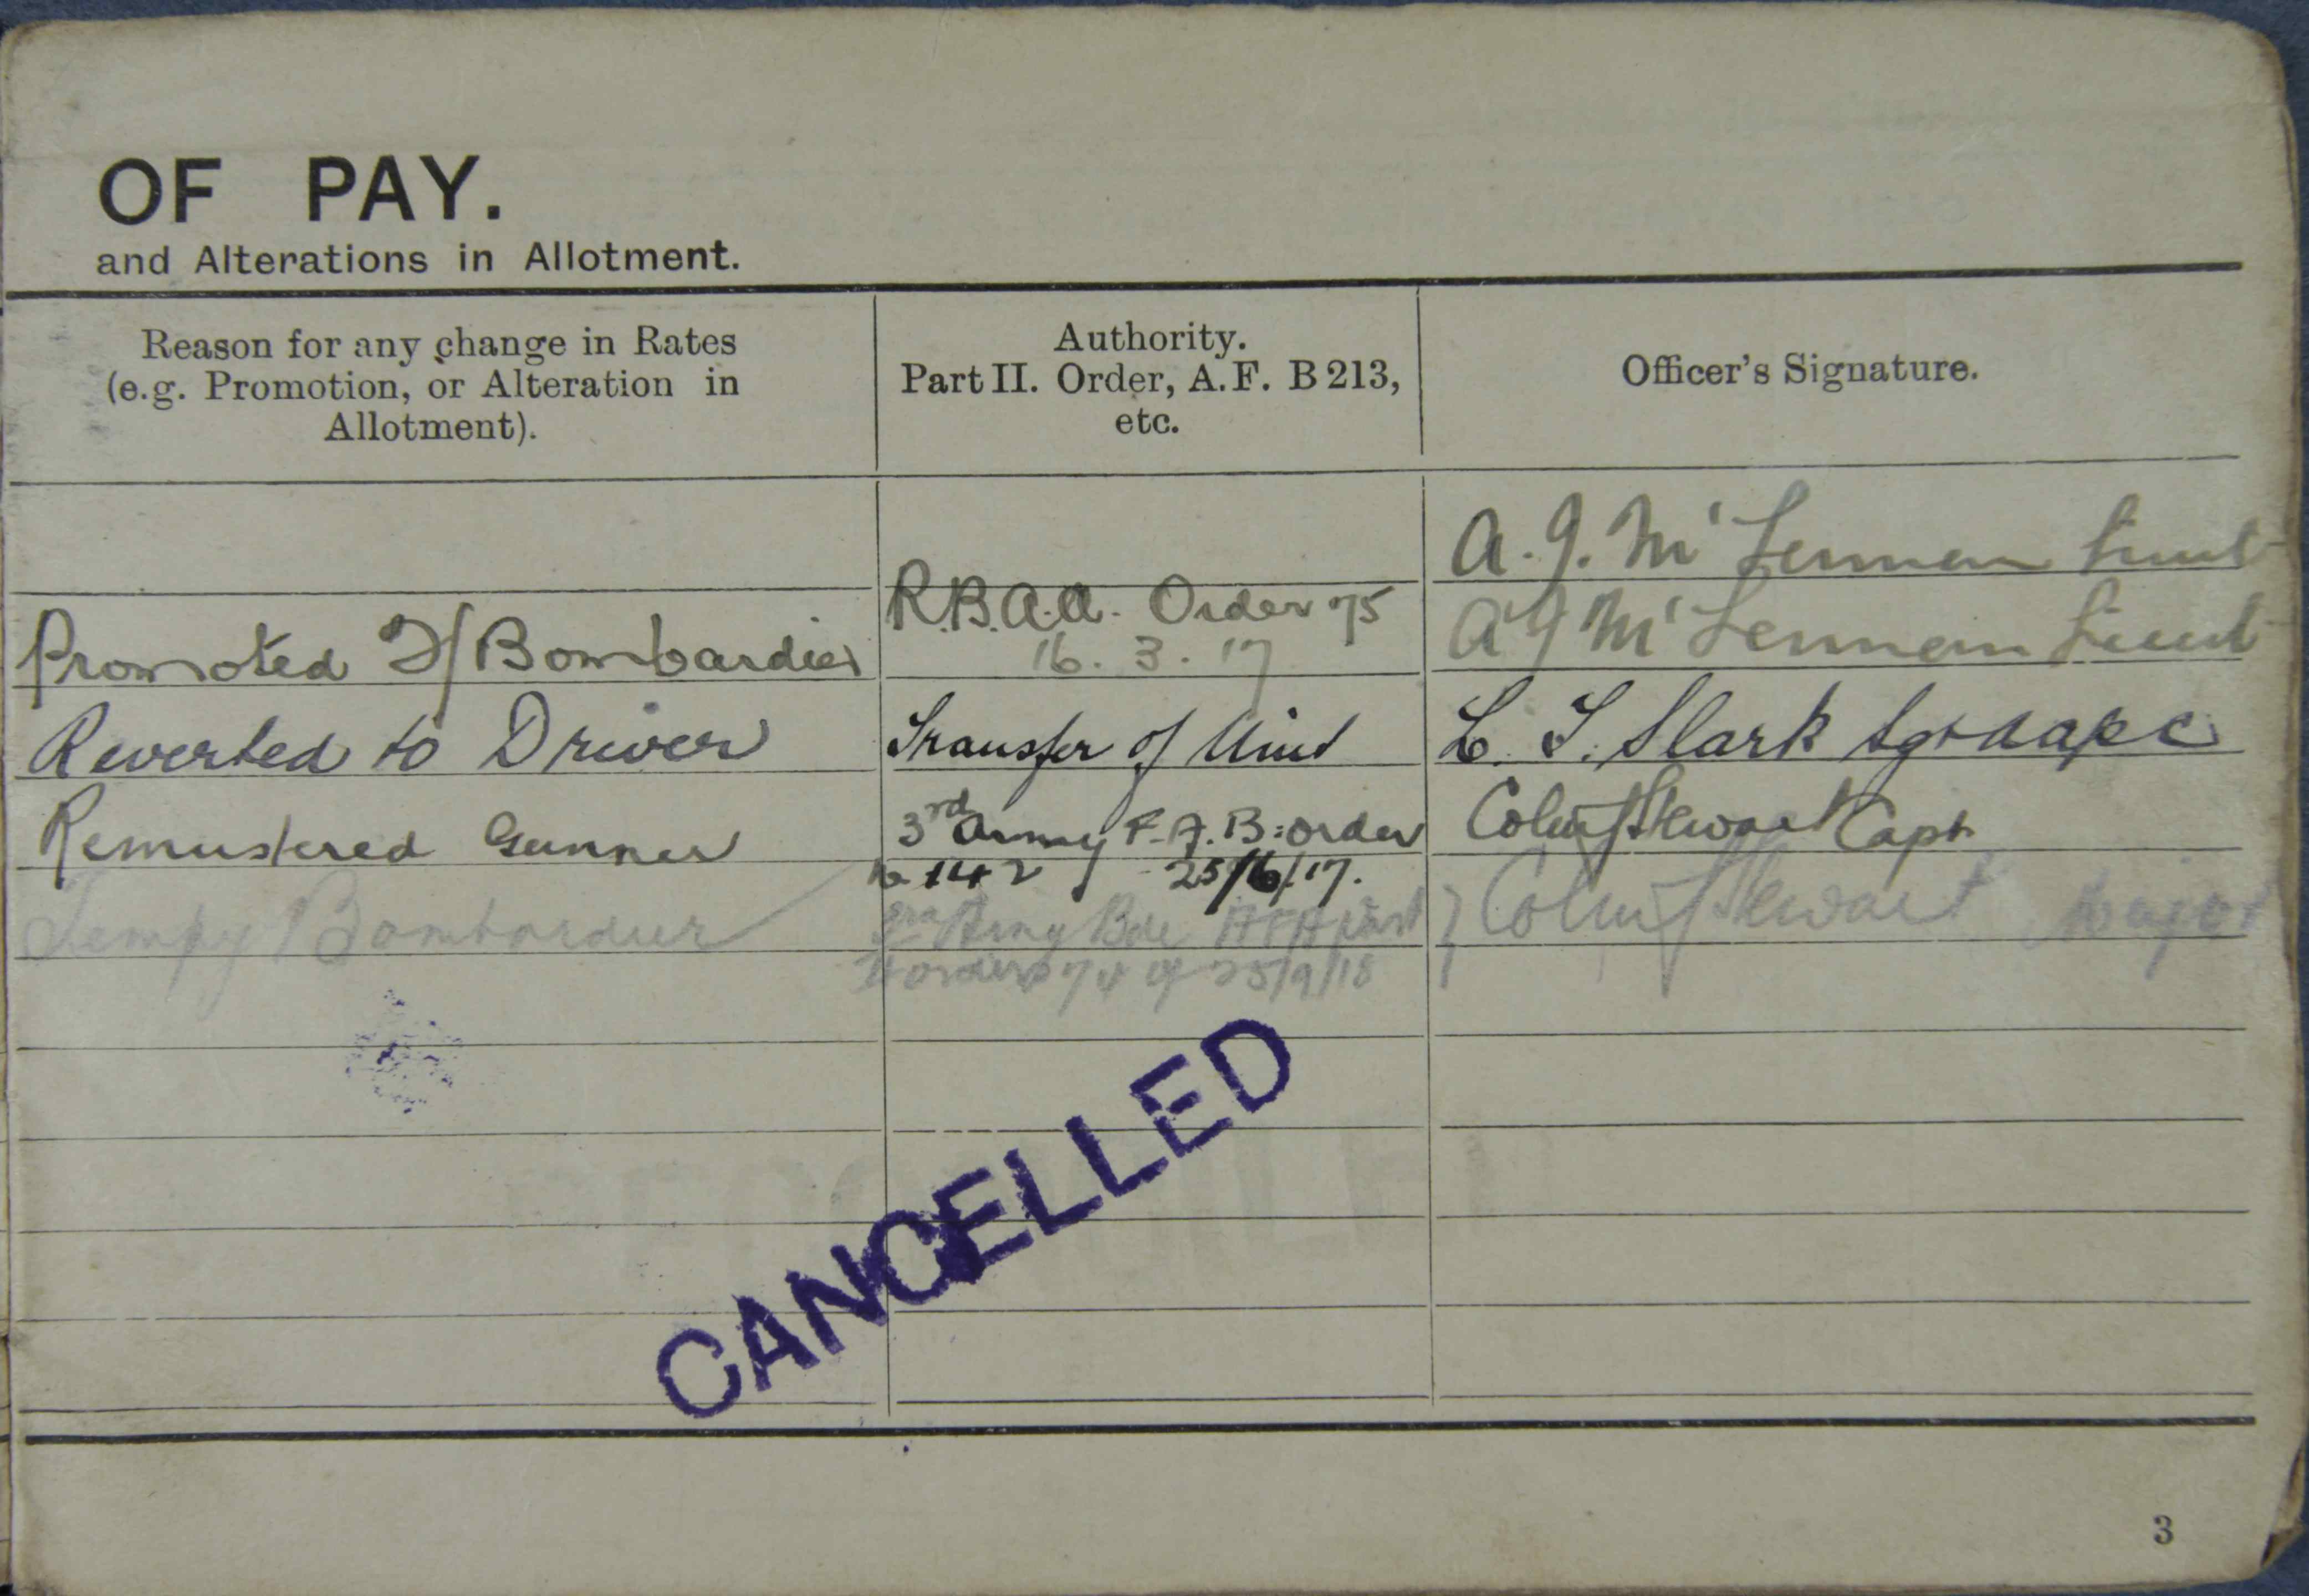 OF PAY.
and Alterations in Allotment.
Reason for any change in Rates
(e.g. Promotion, or Alteration in
Allotment).
Authority.
Part II. Order, A.F. B 213,
etc.
Officer's Signature.
A. G. McLennan Lieut
Promoted T/ Bombardier
R.B.A.A. Order 75
16. 3. 17
A G McLennan Lieut
Reverted to Driver
Transfer of Unit
L. T. Slark Sgt AAPC
Remustered Gunner
3rd Army F.A.B: order
142 25/6/17.
Colin Stewart Capt
Tempy Bombardier
3rd Army Bde AFA part
II order 74 of 25/9/18
Colin Stewart Major
CANCELLED
3